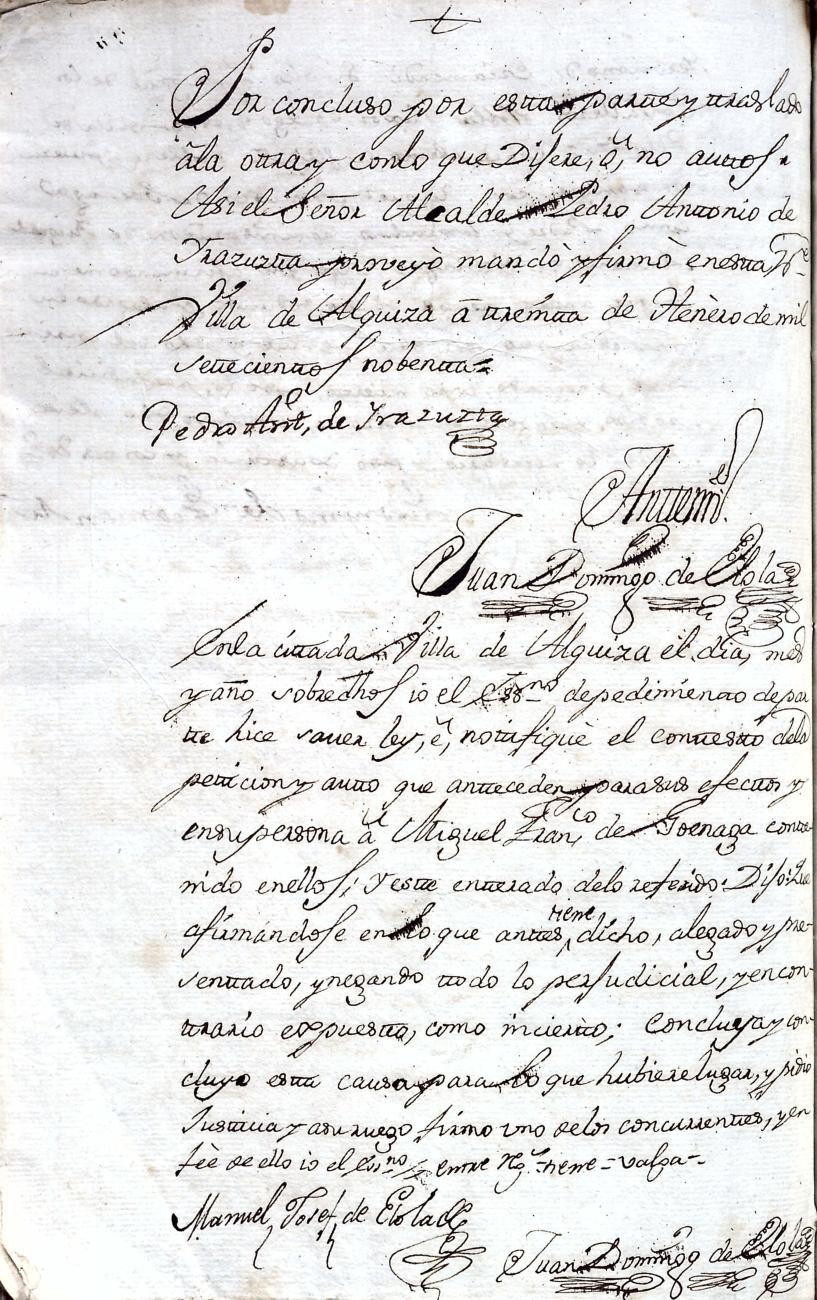 Por concluso por estta partte y traslado
àla ottra y conlo que Dijere, ô, no auttos.
Asi el Señor Alcalde Pedro Anttonio de
Yrazuztta proveyò mandò y firmò enestta N.e
Villa de Alquiza â ttreintta de Henèro de mil
settecienttos nobentta=
Pedro Antt.o de Yrazuzta
Anttemi
Juan Domingo de Elola
Enla cittada Villa de Alquiza el dia, mes
y año sobredhos io el Ess.no de pedimientto de par
tte hice saver ley, è, nottifiquè el conttestto dela
petticion y autto que anttecedenn para sus efecttos y
ensu persona â Miguel Fran.co de Goenaga conte
nido enellos; Yestte entterado delo referido: Dijo: Que
afirmándose en lo que anttes tiene dicho, alegado y pre-
senttado, y negando ttodo lo perjudicial, y en con-
ttrario expuestto, como inciertto; Concluya y con-
cluyo estta causa para lo que hubiere lugar, y pidio
Justticia y asu ruego firmo uno delos concurrenttes, y en
feè de ello io el Ess.no entre Rg.s tiene = valga -
Manuel Josef de Elola
Juan Domingo de Elola